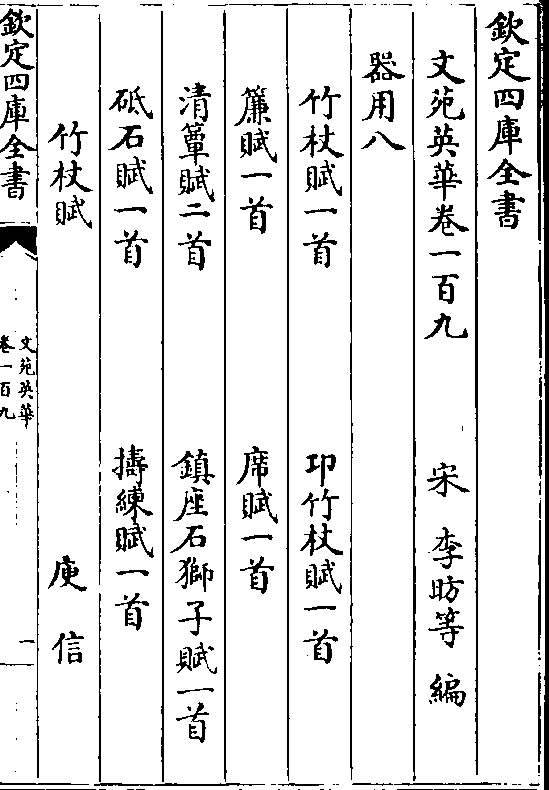 欽定四庫全書
文苑英華卷一百九
宋 李昉等 編
器用八
竹杖賦一首
卭竹杖賦一首
簾賦一首
席賦一首
清簟賦二首
鎮座石獅子賦一首
砥石賦一首
擣練賦一首
竹杖賦
庾信
欽定四庫全書
文苑英華
卷一百九
一